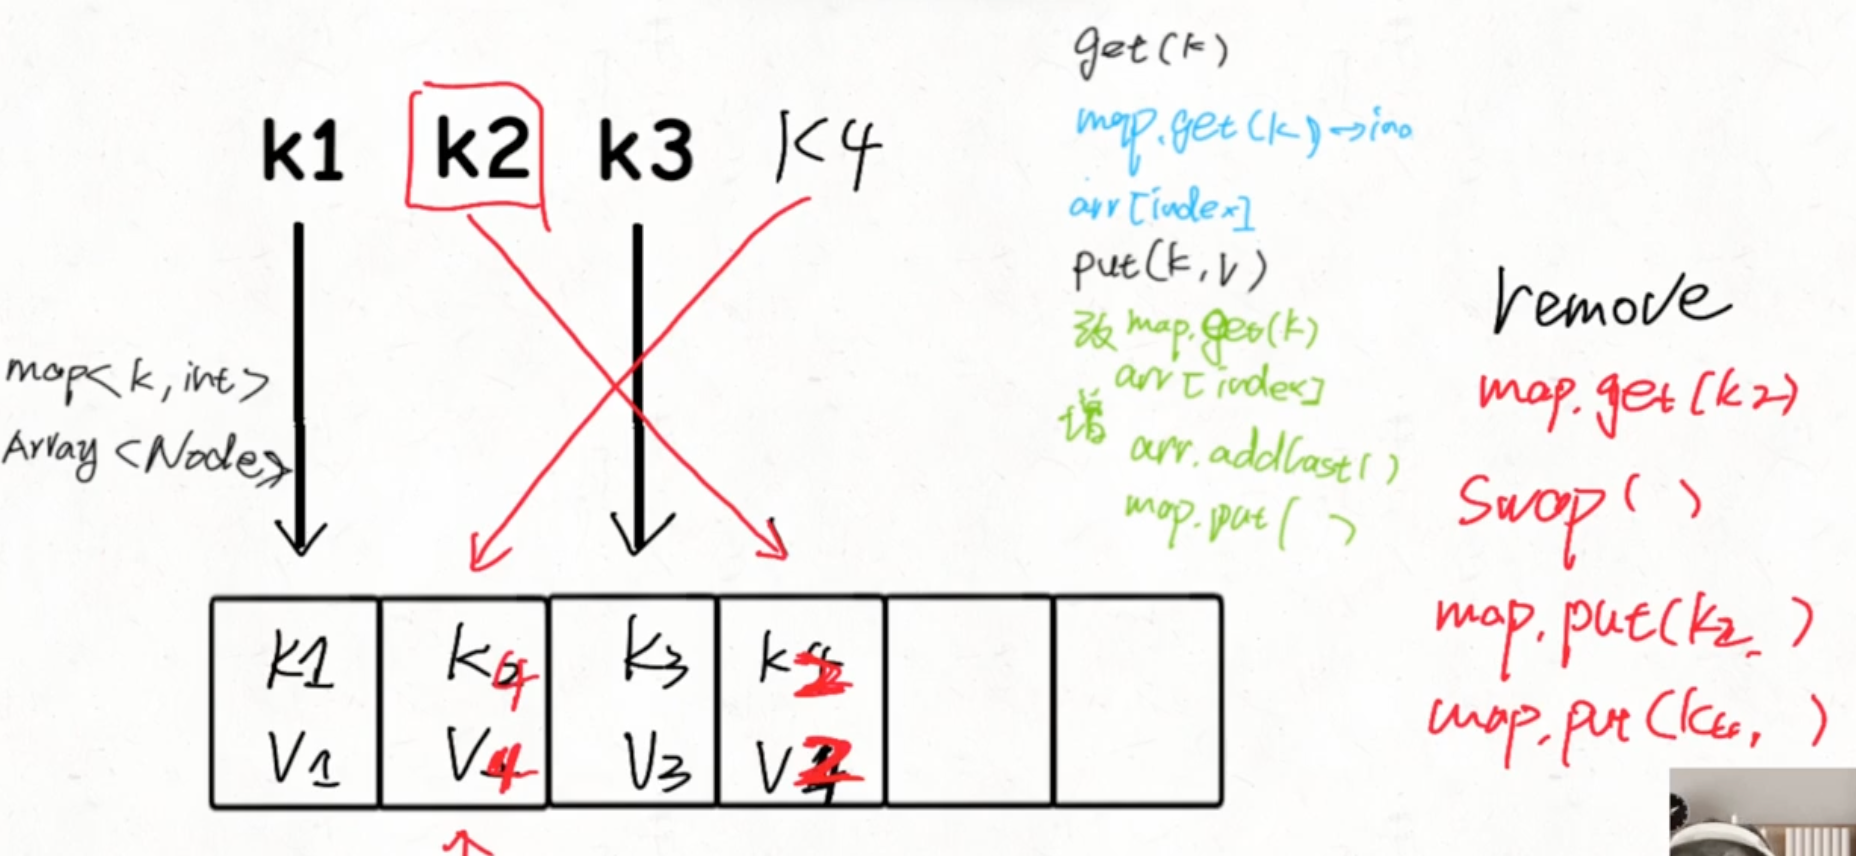 k1 k2 k3 k4
map<k, int>
Array <Node>
k1 k4 k3 k2
V1 V4 V3 V2
get(k)
map.get(k)→in
arr[index]
put(k, V)
改 map.get(k)
arr[index]
增 arr.addLast()
map.put( )
remove
map.get(k2)
Swap( )
map.put(k2, )
map.put(k4, )